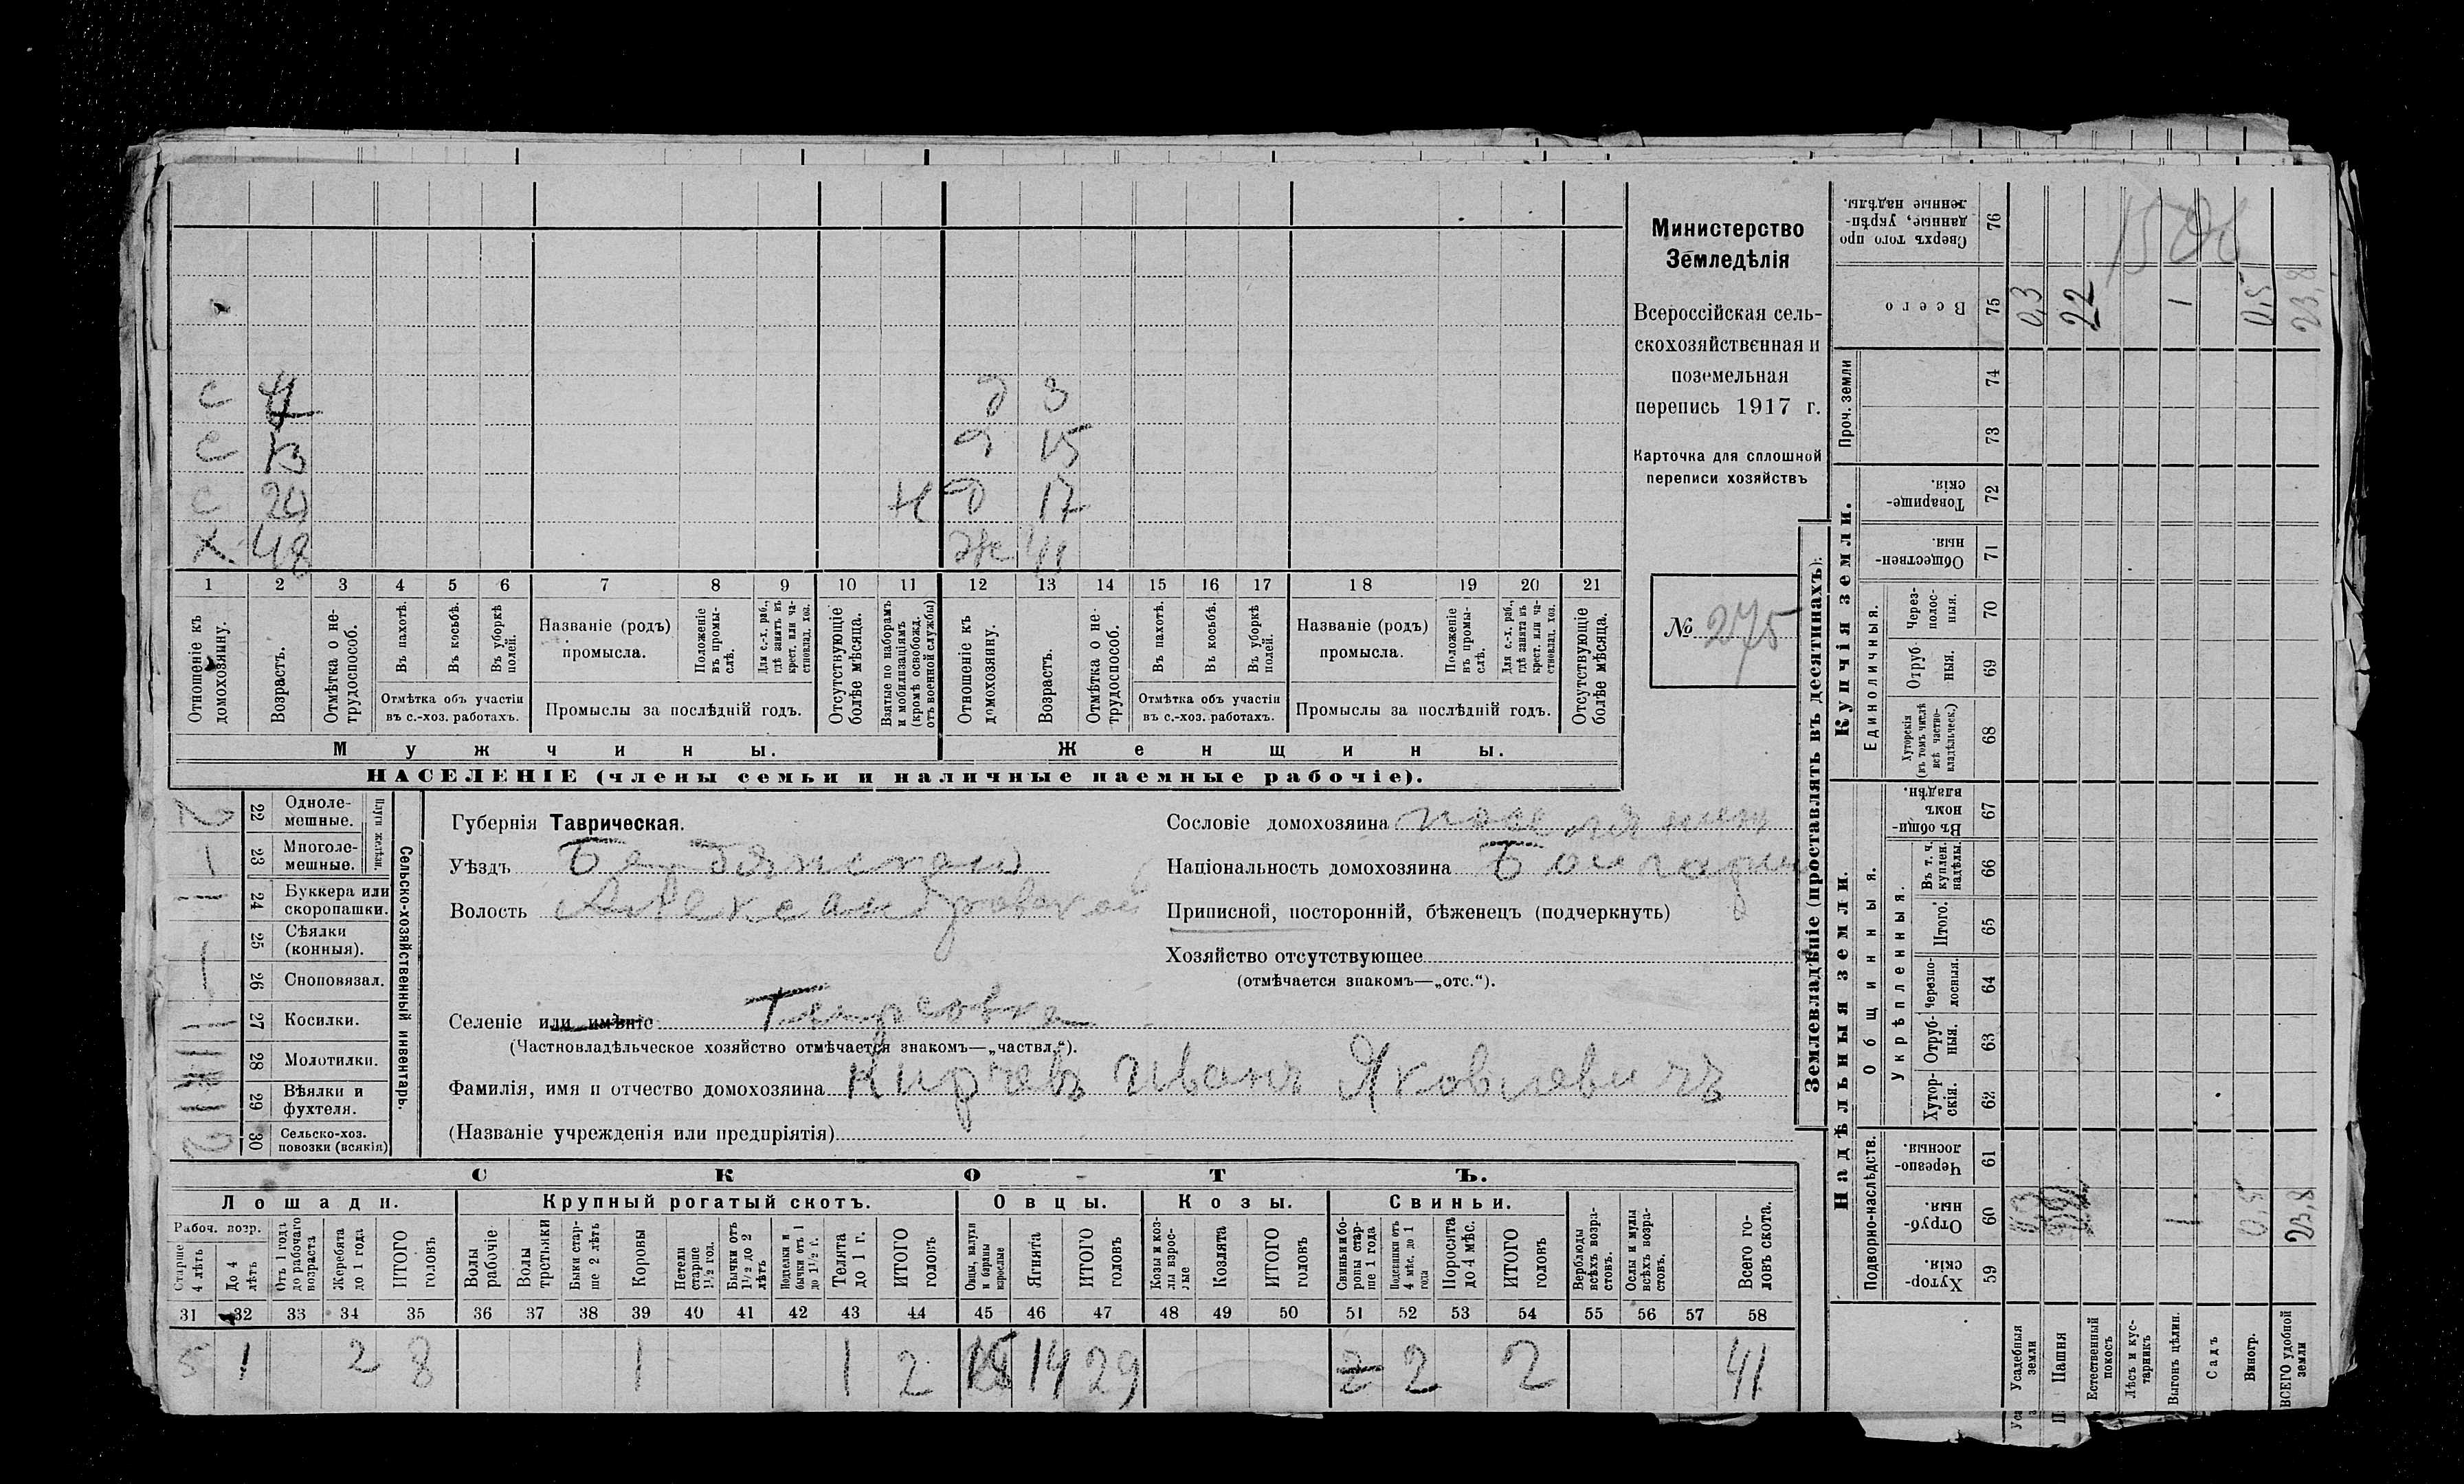 Министерство
Земледѣлія
Всероссійская сель-
скохозяйственная и
поземельная
перепись 1917 г.
Карточка для сплошной
переписи хозяйствъ
№ 275
с 4 д 3
с 13 д 15
с 20 н д 17
х 48 же 41
1 2 3 4 5 6 7 8 9 10 11 12 13 14 15 16 17 18 19 20 21
Отношеніе къ домохозяину.
Возрастъ.
Отмѣтка о не-трудоспособ.
Въ пахотѣ.
Въ косьбѣ.
Въ уборкѣ полей.
Отмѣтка объ участіи
въ с.-хоз. работахъ.
Названіе (родъ)
промысла.
Положеніе въ промы-слѣ.
Для с.-х. раб., гдѣ занятъ въ крест. или ча-стновлад. хоз.
Промыслы за послѣдній годъ.
Отсутствующіе болѣе мѣсяца.
Взятые по наборамъ и мобилизаціямъ (кромѣ освобожд. отъ военной службы)
Отношеніе къ домохозяину.
Возрастъ.
Отмѣтка о не-трудоспособ.
Въ пахотѣ.
Въ косьбѣ.
Въ уборкѣ полей.
Отмѣтка объ участіи
въ с.-хоз. работахъ.
Названіе (родъ)
промысла.
Положеніе въ промы-слѣ.
Для с.-х. раб., гдѣ занята въ крест. или ча-стновлад. хоз.
Промыслы за послѣдній годъ.
Отсутствующіе болѣе мѣсяца.
Мужчины. Женщины.
НАСЕЛЕНІЕ (члены семьи и наличные наемные рабочіе).
Сельско-хозяйственный инвентарь.
Плуги желѣзн.
2 22 Одноле-мешные.
1 23 Многоле-мешные.
1 24 Буккера или скоропашки.
25 Сѣялки (конныя).
1 26 Сноповязал.
1 27 Косилки.
28 Молотилки.
1 29 Вѣялки и фухтеля.
2 30 Сельско-хоз. повозки (всякія)
Губернія Таврическая.
Уѣздъ Бердянскаго
Волость Александровской
Селеніе или имѣніе
(Частновладѣльческое хозяйство отмѣчается знакомъ—„частвл.“).
Фамилія, имя и отчество домохозяина Кирчевъ Иванъ Яковлевичъ
(Названіе учрежденія или предпріятія)
Сословіе домохозяина поселянинъ
Національность домохозяина Болгаринъ
Приписной, посторонній, бѣженецъ (подчеркнуть)
Хозяйство отсутствующее
(отмѣчается знакомъ—„отс.“).
СКОТЪ.
Лошади. Крупный рогатый скотъ. Овцы. Козы. Свиньи.
Рабоч. возр.
Старше 4 лѣтъ
До 4 лѣтъ
Отъ 1 года до рабочаго возраста
Жеребята до 1 года
ИТОГО головъ
Волы рабочіе
Волы третьяки
Быки стар-ше 2 лѣтъ
Коровы
Нетели старше 1½ год.
Бычки отъ 1½ до 2 лѣтъ
Нетели и бычки отъ 1 до 1½ г.
Телята до 1 г.
ИТОГО головъ
Овцы, валухи и бараны взрослые
Ягнята
ИТОГО головъ
Козы и коз-лы взрос-лые
Козлята
ИТОГО головъ
Свиньи и бо-ровы стар-ше 1 года
Подсвинки отъ 4 мѣс. до 1 года
Поросята до 4 мѣс.
ИТОГО головъ
Верблюды всѣхъ возра-стовъ.
Ослы и мулы всѣхъ возра-стовъ.
Всего го-ловъ скота.
31 32 33 34 35 36 37 38 39 40 41 42 43 44 45 46 47 48 49 50 51 52 53 54 55 56 57 58
5 1 2 8 1 1 2 15 14 29 2 2 2 41
Землевладѣніе (проставлять въ десятинахъ).
Купчія земли.
Надѣльныя земли.
Сверхъ того про-данные, укрѣп-ленные надѣлы. 76
Всего 75 0,3 22 1 0,5 23,8
Проч. земли 74 73
Товарище-скія. 72
Обществен-ныя. 71
Единоличныя.
Через-полос-ныя. 70
Отруб-ныя. 69
Хуторскія (въ томъ числѣ всѣ частно-владѣльческ.) 68
Общинныя.
Въ общи-номъ владѣн. 67
Укрѣпленныя.
Въ т. ч. куплен. надѣлы. 66
Итого. 65
Черезпо-лосныя. 64
Отруб-ныя. 63
Хутор-скія. 62
Подворно-наслѣдств.
Черезпо-лосныя. 61
Отруб-ныя. 60 1 0,5 23,8
Хутор-скія. 59
Усадебныя земли
Пашня
Естественный покосъ
Лѣсъ и кус-тарникъ
Выгонъ цѣлин.
Садъ
Виногр.
ВСЕГО удобной земли